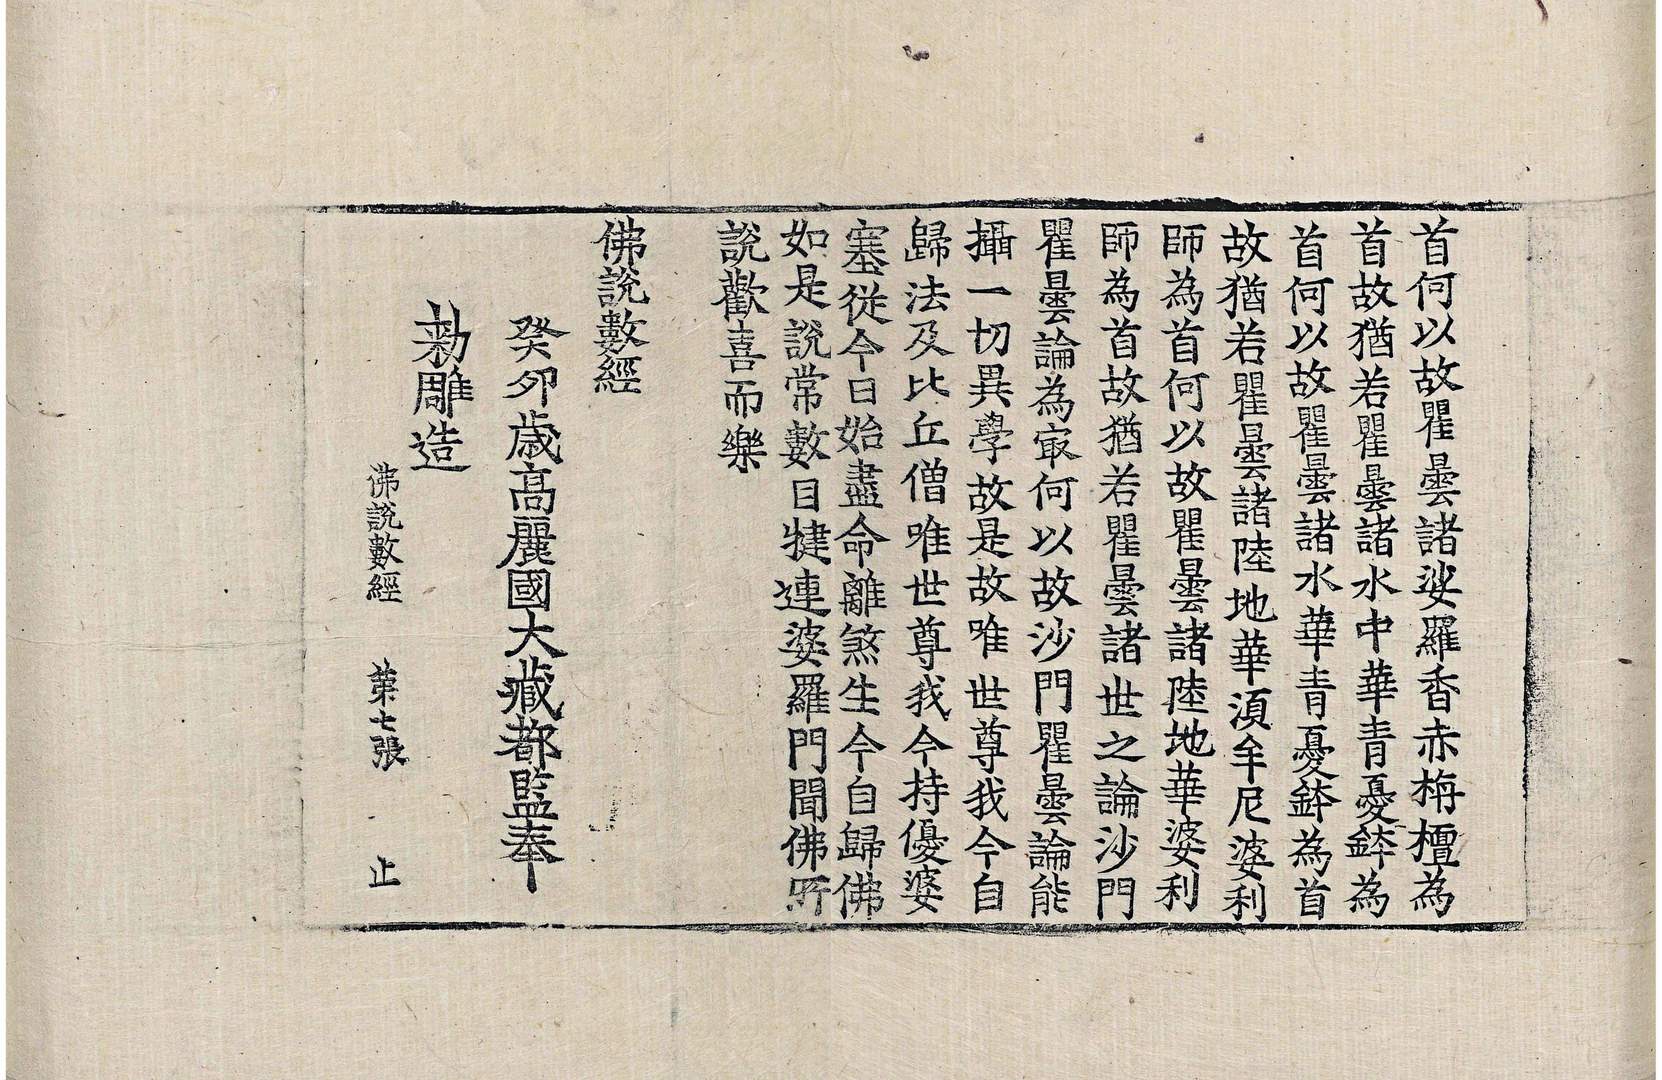 首何以故瞿曇諸娑羅香赤栴檀為
首故猶若瞿曇諸水中華青憂鉢為
首何以故瞿曇諸水華青憂鉢為首
故猶若瞿曇諸陸地華湏牟尼婆利
師為首何以故瞿曇諸陸地華婆利
師為首故猶若瞿曇諸世之論沙門
瞿曇論為㝡何以故沙門瞿曇論能
攝一切異學故是故唯世尊我今自
歸法及比丘僧唯世尊我今持優婆
塞從今日始盡命離煞生今自歸佛
如是說常數目揵連婆羅門聞佛所
說歡喜而樂
佛說數經
癸卯歳高麗國大藏都監奉
勑雕造
佛說數經 第七張 止